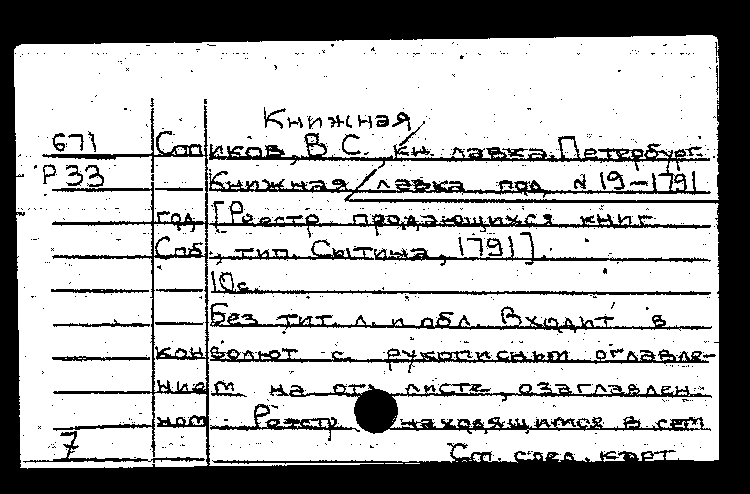 Книжная
671 Сопиков, В.С. кн. лавка. Петербург.
Р33 Книжная лавка под № 19-1791
год [Реестр продающихся книг.
Спб., тип. Сытина, 1791].
10с.
Без тит. л. и обл. Входит в
конволют с рукописным оглавле-
нием на отд. листе, озаглавлен-
ном: Реестр находящимся в сей
7 См. след. карт